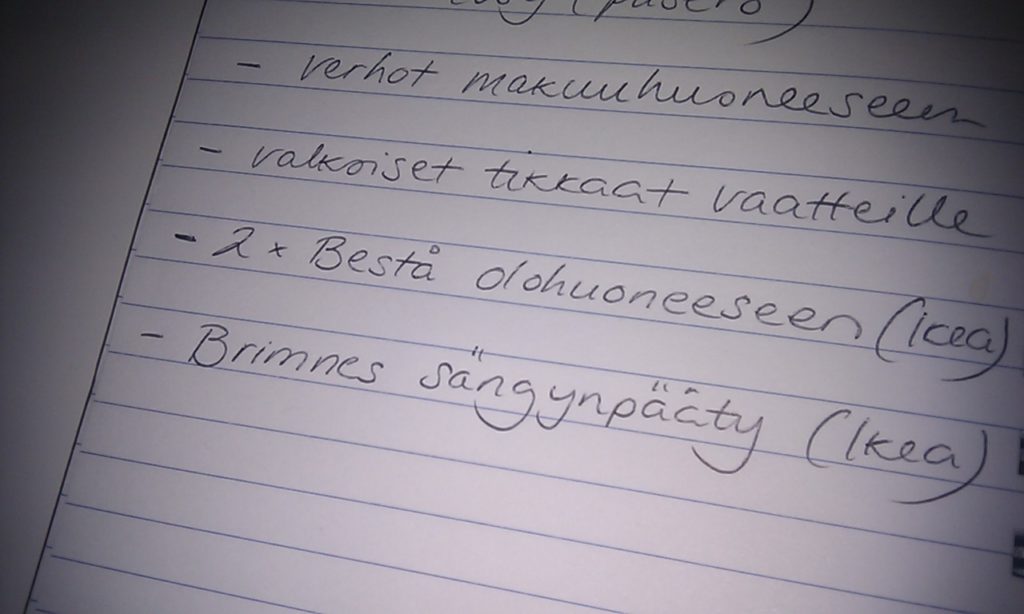 - verhot makuuhuoneeseen
- valkoiset tikkaat vaatteille
- 2 x Bestå olohuoneeseen (Ikea)
- Brimnes sängynpääty (Ikea)